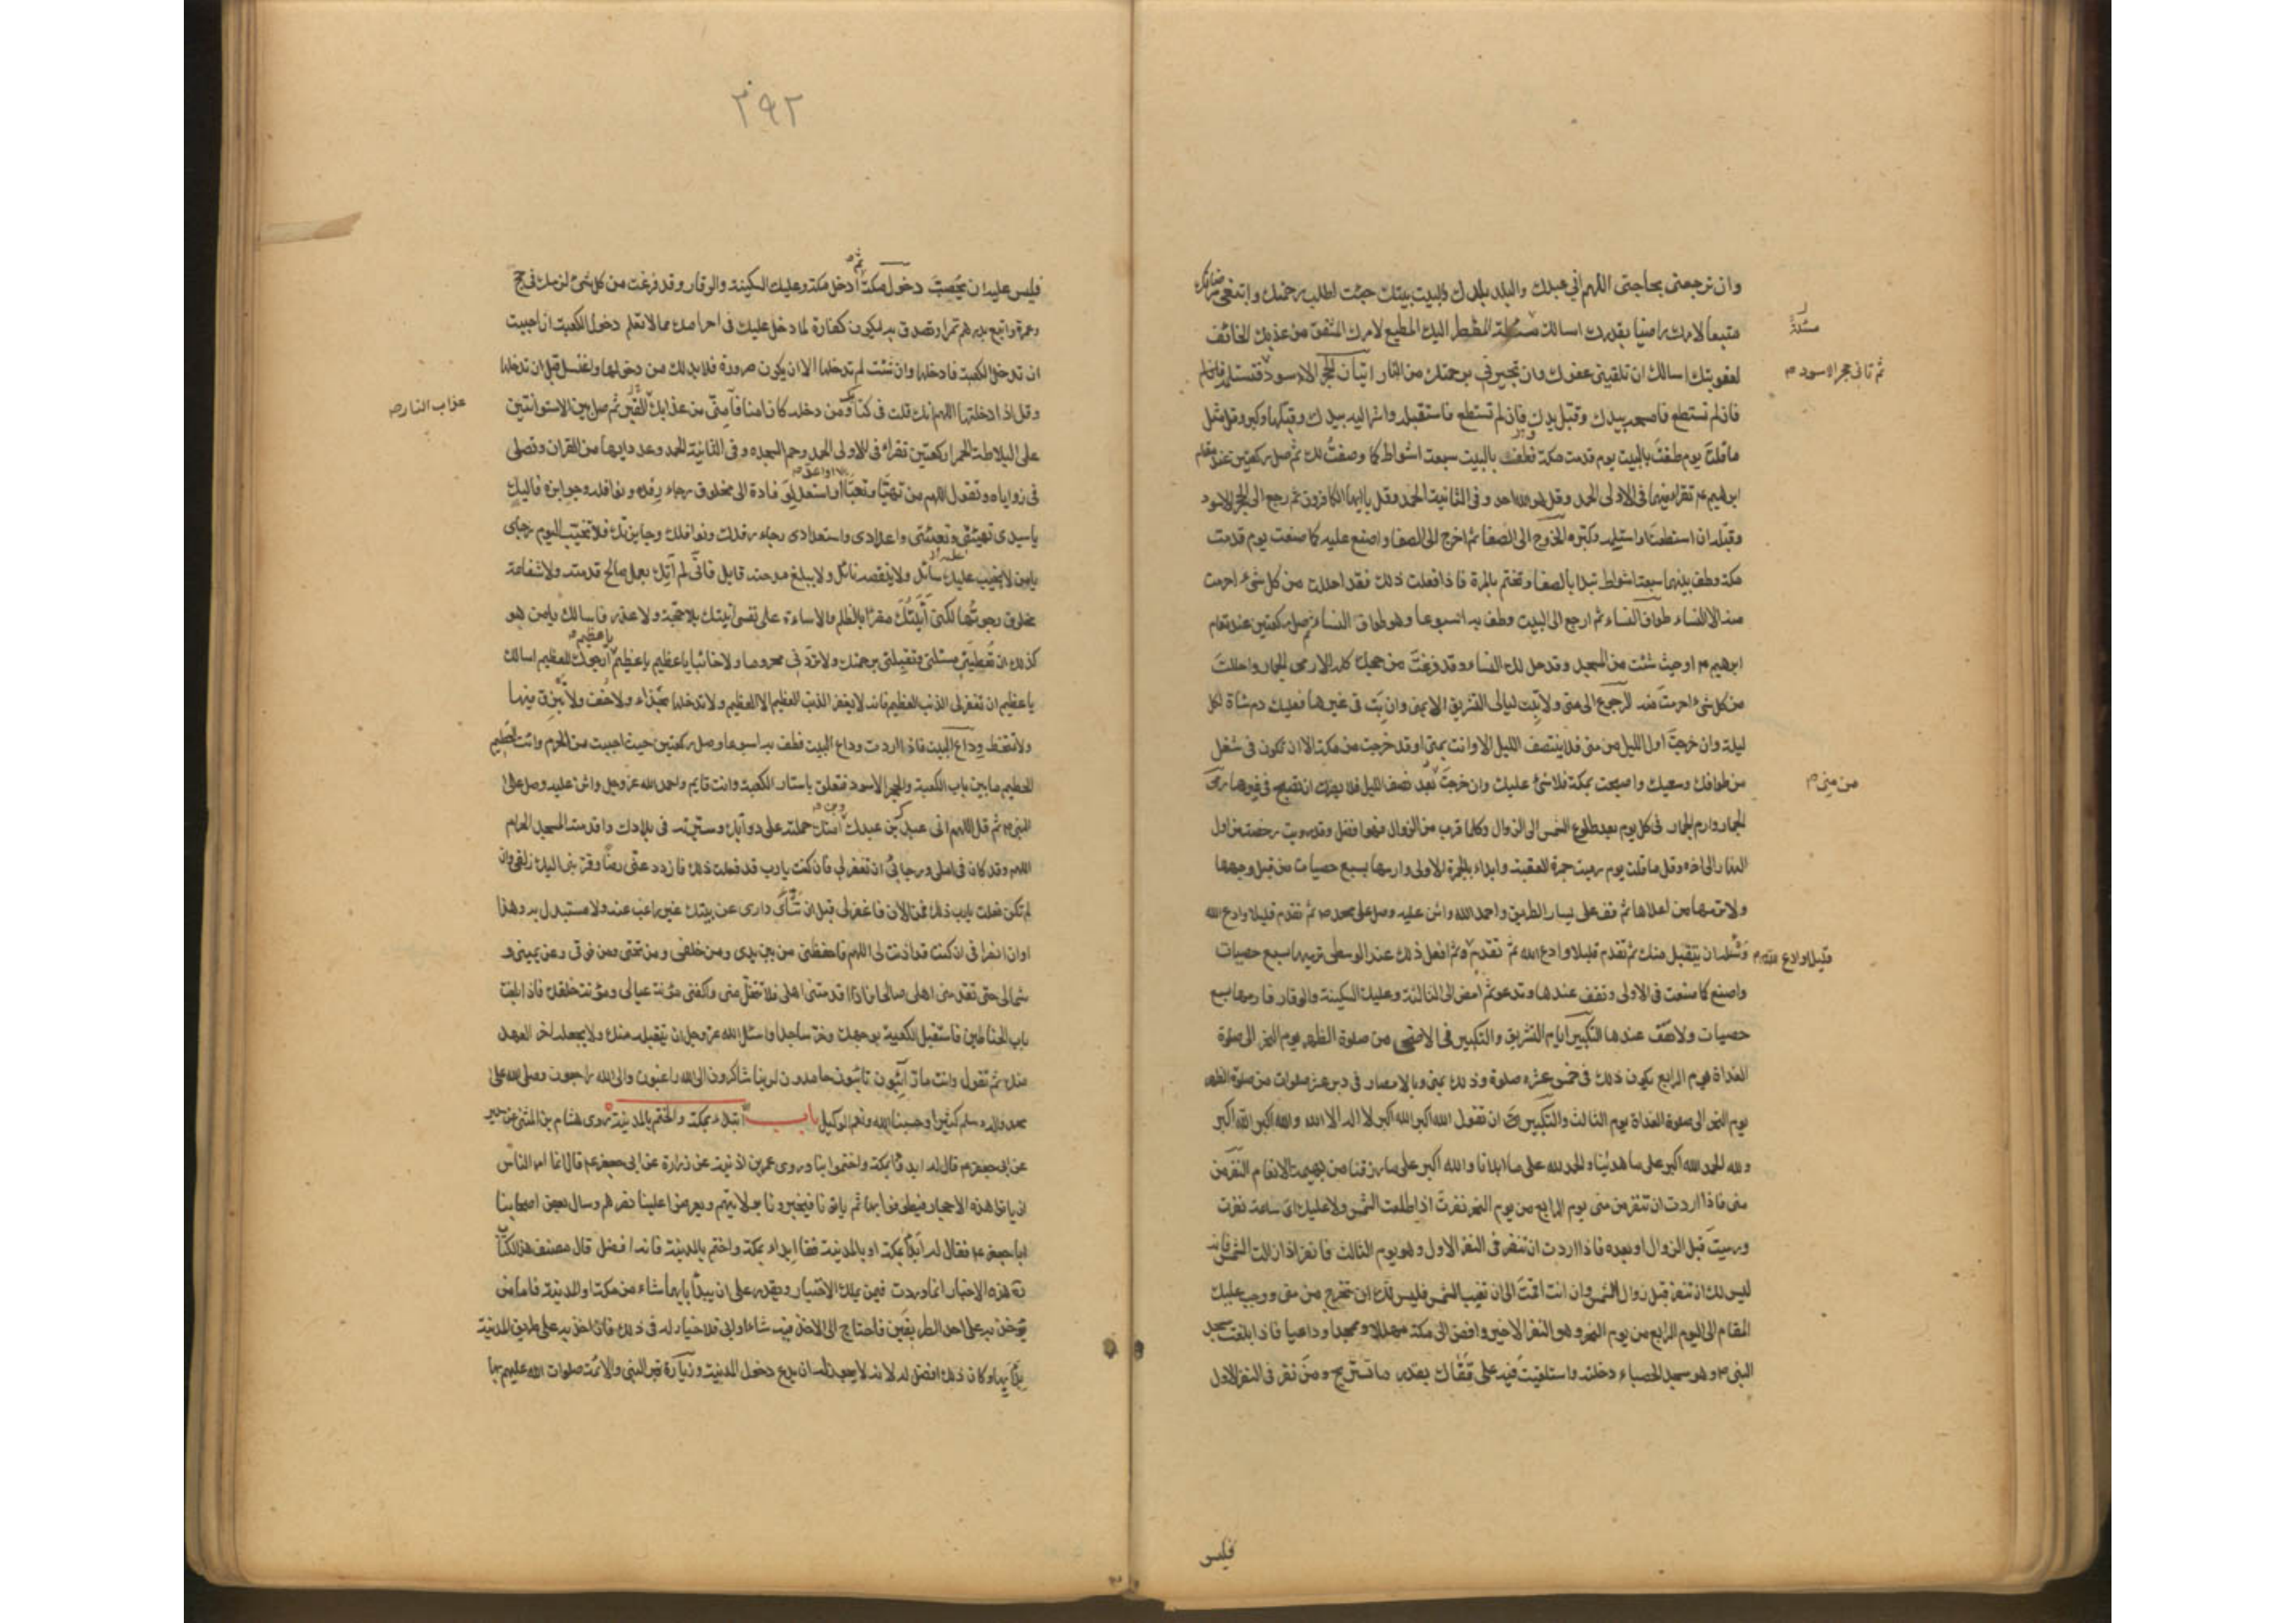 وان ترجعنى بحاجتى اللهم انى عبدك والبلد بلدك والبيت بيتك جئت اطلب رحمتك وابتغى مرضاتك
متبعا لامرك راضيا بقدرك اسالك مسئلة المضطر اليك المطيع لامرك المشفق من عذابك الخائف
لعقوبتك اسالك ان تلقينى عفوك وان تجيرنى برحمتك من النار اتيان الحجر الاسود فتستلمه فان لم
فان لم تستطع فامسحه بيدك وقبل يدك فان لم تستطع فاستقبله واشر اليه بيدك وقبلها وكبر وقل مثل
ما قلت يوم طفت بالبيت يوم قدمت مكة وطف بالبيت سبعة اشواط كما وصفت لك ثم صل ركعتين عند مقام
ابرهيم ع تقرا فيهما فى الاولى الحمد وقل هو الله احد وفى الثانية الحمد وقل يا ايها الكافرون ثم ارجع الى الحجر الاسود
وقبله ان استطعت واستلمه وكبره الخروج الى الصفا ثم اخرج الى الصفا واصنع عليه كما صنعت يوم قدمت
مكة وطف بينهما سبعة اشواط تبدا بالصفا وتختم بالمروة فاذا فعلت ذلك فقد احللت من كل شىء احرمت
منه الا النساء طواف النساء ثم ارجع الى البيت وطف به اسبوعا وهو طواف النساء ثم صل ركعتين عند مقام
ابرهيم ع او حيث شئت من المسجد وقد حل لك النساء وقد فرغت من حجك كله الا رمى الجمار واحللت
من كل شىء احرمت منه الرجوع الى منى ولا تبت ليالى التشريق الا بمنى وان بت فى غيرها فعليك دم شاة لكل
ليلة وان خرجت اول الليل من منى فلا ينتصف الليل الا وانت بمنى او قد خرجت من مكة الا ان تكون فى شغل
من طوافك وسعيك واصبحت بمكة فلا شىء عليك وان خرجت بعد نصف الليل فلا يضرك ان تصبح فى غيرها رمى
الجمار وارم الجمار فى كل يوم بعد طلوع الشمس الى الزوال وكلما قرب من الزوال فهو افضل وقد رويت رخصة من اول
النهار الى اخره وقل ما قلت يوم رميت جمرة العقبة وابداء بالجمرة الاولى وارمها بسبع حصيات من قبل وجهها
ولا ترمها من اعلاها ثم قف على يسار الطريق واحمد الله واثن عليه وصل على محمد ص ثم تقدم قليلا وادع الله
وسئله ان يتقبل منك ثم تقدم قليلا وادع الله ثم تقدم ثم افعل ذلك عند الوسطى ترميها سبع حصيات
واصنع كما صنعت فى الاولى وتقف عندها وتدعو ثم امض الى الثالثة وعليك السكينة والوقار فارمها بسبع
حصيات ولا تقف عندها التكبير ايام التشريق والتكبير فى الاضحى من صلوة الظهر يوم النحر الى صلوة
الغداة يوم الرابع يكون ذلك فى خمس عشره صلوة وذلك بمنى وبالامصار فى دبر عشر صلوات من صلوة الظهر
يوم النحر الى صلوة الغداة يوم الثالث والتكبير ان تقول الله اكبر الله اكبر لا اله الا الله والله اكبر الله اكبر
ولله الحمد الله اكبر على ما هدينا والحمد لله على ما ابلانا والله اكبر على ما رزقنا من بهيمة الانعام النفر من
منى فاذا اردت ان تنفر من منى يوم الرابع من يوم النحر نفرت اذا طلعت الشمس ولا عليك اى ساعة نفرت
ورميت قبل الزوال او بعده فاذا اردت ان تنفر فى النفر الاول وهو يوم الثالث فانفر اذا زالت الشمس فانه
ليس لك ان تنفر قبل زوال الشمس وان انت اقمت الى ان تغيب الشمس فليس لك ان تخرج من منى ووجب عليك
المقام الى اليوم الرابع من يوم النحر وهو النفر الاخير وافض الى مكة مهللا وممجدا وداعيا فاذا بلغت مسجد
النبى ص وهو مسجد الحصباء دخلته واستلقيت فيه على قفاك بقدر ما تستريح ومن نفر فى النفر الاول
مسئلة
ثم تاتى حجر الاسود م
من منى م
قليلا وادع الله م
فليس
٢٩٢
فليس عليه ان يحصب دخول مكة ثم ادخل مكة وعليك السكينة والوقار وقد فرغت من كل شىء لزمك فى حج
وعمرة وابتع بدرهم تمرا وتصدق به ليكون كفارة لما دخل عليك فى احرامك مما لا تعلم دخول الكعبة ان احببت
ان تدخل الكعبة فادخلها وان شئت لم تدخلها الا ان يكون صرورة فلا بد لك من دخولها واغتسل قبل ان تدخلها
وقل اذا دخلتها اللهم انك قلت فى كتابك ومن دخله كان امنا فآمنى من عذابك القبر ثم صل بين الاسطوانتين
على البلاطة الحمرا ركعتين تقرا فى الاولى الحمد وحم السجده وفى الثانية الحمد وعدد ايها من القران وتصلى
فى زواياه وتقول اللهم من تهيا وتعبا او اعد او استعد لوفادة الى مخلوق رجاء رفده ونوافله وجوايزه فاليك
يا سيدى تهيئتى وتعبئتى واعدادى واستعدادى رجاء رفدك ونوافلك وجايزتك فلا تخيب اليوم رجاى
يا من لا يخيب عليه سائل ولا ينقصه نائل ولا يبلغ مدحته قايل فانى لم آتك بعمل صالح قدمته ولا شفاعة
مخلوق رجوتها لكنى اتيتك مقرا بالظلم والاساءة على نفسى اتيتك بلا حجة ولا عذر فاسالك يا من هو
كذلك ان تعطينى مسئلتى وتقبلنى برحمتك ولا تردنى محروما ولا خائبا يا عظيم يا عظيم يا عظيم ارجوك للعظيم اسالك
يا عظيم ان تغفر لى الذنب العظيم فانه لا يغفر الذنب العظيم الا العظيم ولا تدخلها بحذاء ولا خف ولا تبزق فيها
ولا تمتخط وداع البيت فاذا اردت وداع البيت فطف به اسبوعا وصل ركعتين حيث احببت من الحرم وائت الحطيم
الحطيم ما بين باب الكعبة والحجر الاسود فتعلق باستار الكعبة وانت قايم واحمد الله عز وجل واثن عليه وصل على
النبى ص ثم قل اللهم انى عبدك بن عبدك امتك حملته على دوابك وسيرته فى بلادك واقدمته المسجد الحرام
اللهم وقد كان فى املى ورجائى ان تغفر لى فان كنت يا رب قد فعلت ذلك فازدد عنى رضا وقربنى اليك زلفى وان
لم تكن فعلت يا رب ذلك فمن الآن فاغفر لى قبل ان تنآى دارى عن بيتك غير راغب عنه ولا مستبدل به وهذا
اوان انصرافى ان كنت قد اذنت لى اللهم فاحفظنى من بين يدى ومن خلفى ومن تحتى ومن فوقى وعن يمينى و
شمالى حتى تقدمنى اهلى صالحا فاذا اقدمتنى اهلى فلا تخل منى واكفنى مؤنة عيالى ومؤنة خلقك فاذا بلغت
باب الحناطين فاستقبل الكعبة بوجهك وخر ساجدا واسئل الله عز وجل ان يتقبله منك ولا يجعله اخر العهد
منك ثم تقول وانت مار آئبون تائبون حامدون لربنا شاكرون الى الله راغبون والى الله راجعون وصلى الله على
محمد واله وسلم كثيرا وحسبنا الله ونعم الوكيل باب ابتداء بمكة والختم بالمدينة روى هشام بن المثنى عن سدير
عن ابى جعفر ع قال له ابدؤا بمكة واختموا بنا وروى عمر بن اذنية عن زرارة عن ابى جعفر ع قال انما امر الناس
ان ياتوا هذه الاحجار فيطوفوا بها ثم ياتونا فيخبرونا بولايتهم ويعرضوا علينا نصرهم وسال بعض اصحابنا
ابا جعفر ع فقال له ابدأ بمكة او بالمدينة فقا ابداء بمكة واختم بالمدينة فانه افضل قال مصنف هذا الكتاب
هذه الاخبار انما وردت فيمن يملك الاختيار ويقدر على ان يبدأ بايهما شاء من مكة او المدينة فاما من
يؤخذ به على احد الطريقين فاحتاج الى الاخذ فيه شاء او ابى فلا خيار له فى ذلك فان اخذ به على طريق المدينة
بدأ بها وكان ذلك افضل له لانه لا يجوز له ان يدع دخول المدينة وزيارة قبر النبى والائمة صلوات الله عليهم بها
عذاب النار ص